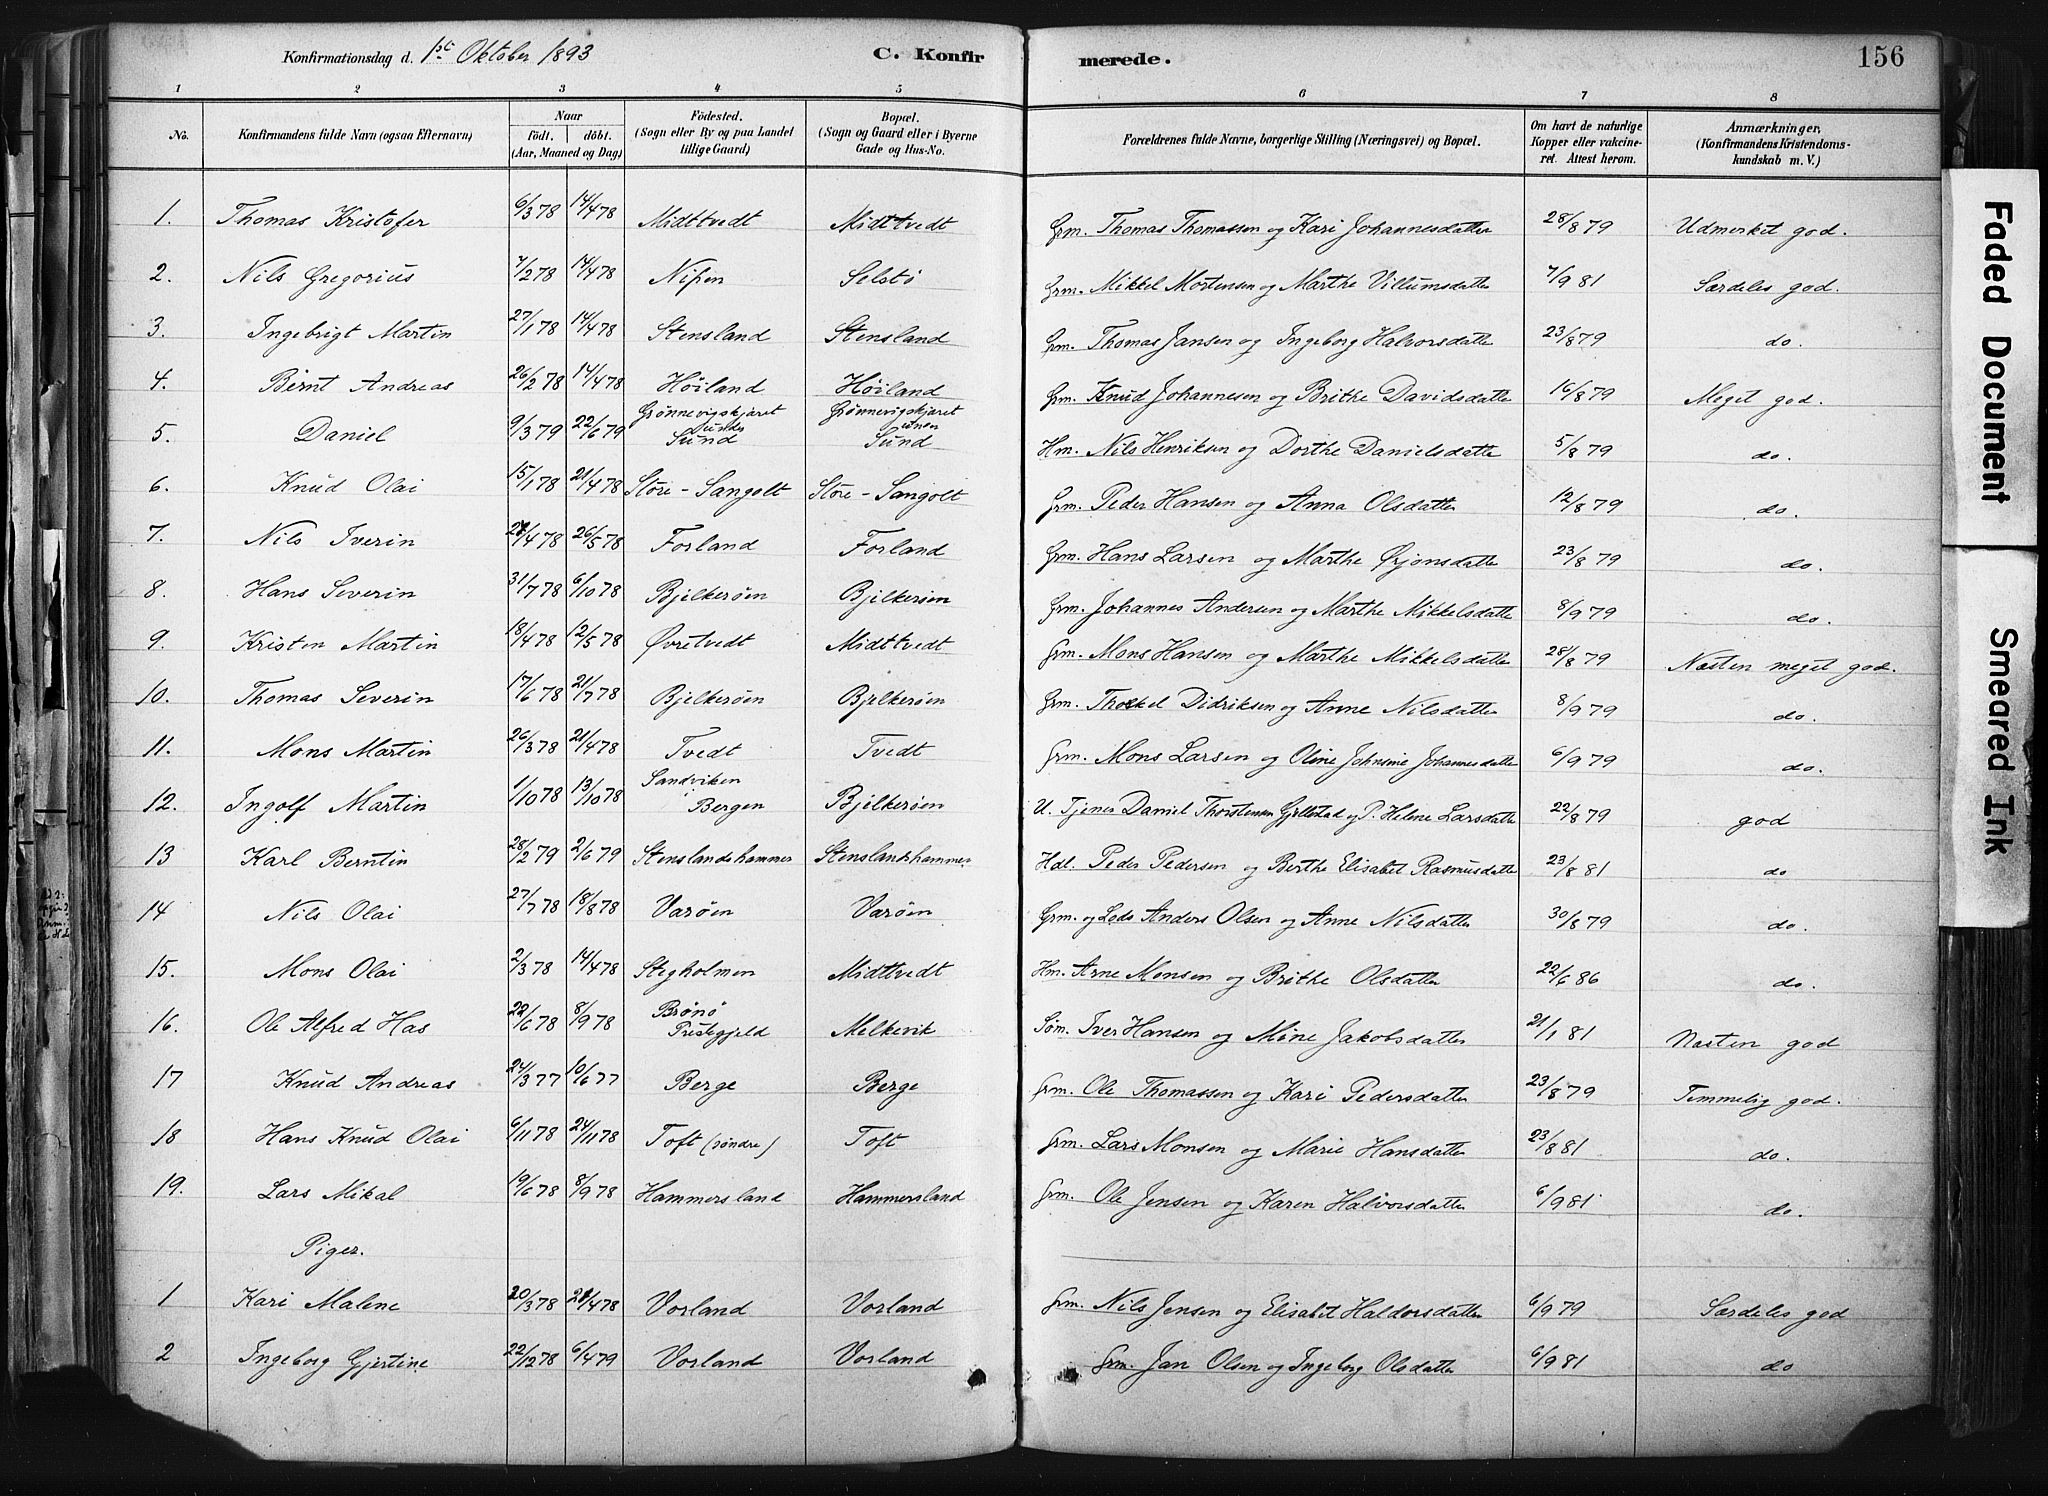 Konfirmationsdag d. 1ste Oktober 1893 C. Konfir merede. 156
1 2 3 4 5 6 7 8
No. Konfirmandens fulde Navn (ogsaa Efternavn) Naar født. døbt. (Aar, Maaned og Dag) Födested. (Sogn eller By og paa Landet tillige Gaard) Bopæl. (Sogn og Gaard eller i Byerne Gade og Hus-No. Forældrenes fulde Navne, borgerlige Stilling (Næringsvei) og Bopæl. Om havt de naturlige Kopper eller vakcineret. Attest herom. Anmærkninger, (Konfirmandens Kristendomskundskab m. V.)
1. Thomas Kristofer 6/3 78 14/4 78 Midttvedt Midttvedt Grm. Thomas Thomassen og Kari Johannesdatter 28/8 79 Udmerket god.
2. Nils Gregorius 7/2 78 14/4 78 Nipen Selstø Grm. Mikkel Mortensen og Marthe Villumsdatter 7/9 81 Særdeles god.
3. Ingebrigt Martin 27/1 78 14/4 78 Stensland Stensland Grm. Thomas Jansen og Ingeborg Halvorsdatter 23/8 79 do.
4. Bernt Andreas 26/2 78 14/4 78 Høiland Høiland Grm. Knud Johannesen og Brithe Davidsdatter 16/8 79 Meget god.
5. Daniel 9/3 79 22/6 79 Grønnevigskjæret under Sund Grønnevigskjæret Sund Hm. Nils Henriksen og Dorthe Danielsdatter 5/8 79 do.
6. Knud Olai 15/1 78 21/4 78 Store-Sangolt Store-Sangolt Grm. Peder Hansen og Anna Olsdatter 12/8 79 do.
7. Nils Iverin 21/4 78 26/5 78 Forland Forland Grm. Hans Larsen og Marthe Ørjansdatter 23/8 79 do.
8. Hans Severin 31/7 78 6/10 78 Bjelkerøen Bjelkerøen Grm. Johannes Andersen og Marthe Mikkelsdatter 8/9 79 do.
9. Kristen Martin 18/4 78 12/5 78 Øvretvedt Midttvedt Grm. Mons Hansen og Marthe Mikkelsdatter 28/8 79 Næsten meget god.
10. Thomas Severin 17/6 78 21/7 78 Bjelkerøen Bjelkerøen Grm. Thorkel Didriksen og Anne Nilsdatter 8/9 79 do.
11. Mons Martin 26/3 78 21/4 78 Tvedt Tvedt Grm. Mons Larsen og Oline Johnsine Johannesdatter 6/9 79 do.
12. Ingolf Martin 1/10 78 13/10 78 Sandviken Bergen Bjelkerøen U. Tjener Daniel Thorstensen Gjellestad og P. Helene Larsdatter 22/8 79 god
13 Karl Berntin 28/2 79 2/6 79 Stenslandshammer Stenslandshammer Hdl. Peder Pedersen og Berthe Elisabet Rasmusdatter 23/8 81 do
14 Nils Olai 27/7 78 18/8 78 Varøen Varøen Grm. og Lods Anders Olsen og Anne Nilsdatter 30/8 79 do.
15. Mons Olai 2/3 78 14/4 78 Stegholmen Midttvedt Hm. Arne Monsen og Brithe Olsdatter 22/6 86 do.
16. Ole Alfred Has 22/6 78 8/9 78 Brønø Præstegjeld Melkevik Søm. Iver Hansen og Mine Jakobsdatter 21/1 81 Næsten god
17 Knud Andreas 24/3 77 10/6 77 Berge Berge Grm. Ole Thomassen og Kari Pedersdatter 23/8 79 Temmelig god.
18 Hans Knud Olai 6/11 78 24/11 78 Toft (søndre) Toft Grm. Lars Monsen og Marie Hansdatter 23/8 81 do.
19. Lars Mikal 19/6 78 8/9 78 Hammersland Hammersland Grm. Ole Jensen og Karen Halvorsdatter 6/9 81 do.
Piger.
1 Kari Malene 20/3 78 21/4 78 Vorland Vorland Grm. Nils Jensen og Elisabet Haldorsdatter 6/9 79 Særdeles god
2 Ingeborg Gjertine 22/12 78 6/4 79 Vorland Vorland Grm. Jan Olsen og Ingeborg Olsdatter 6/9 81 do
Faded Document
Smeared Ink